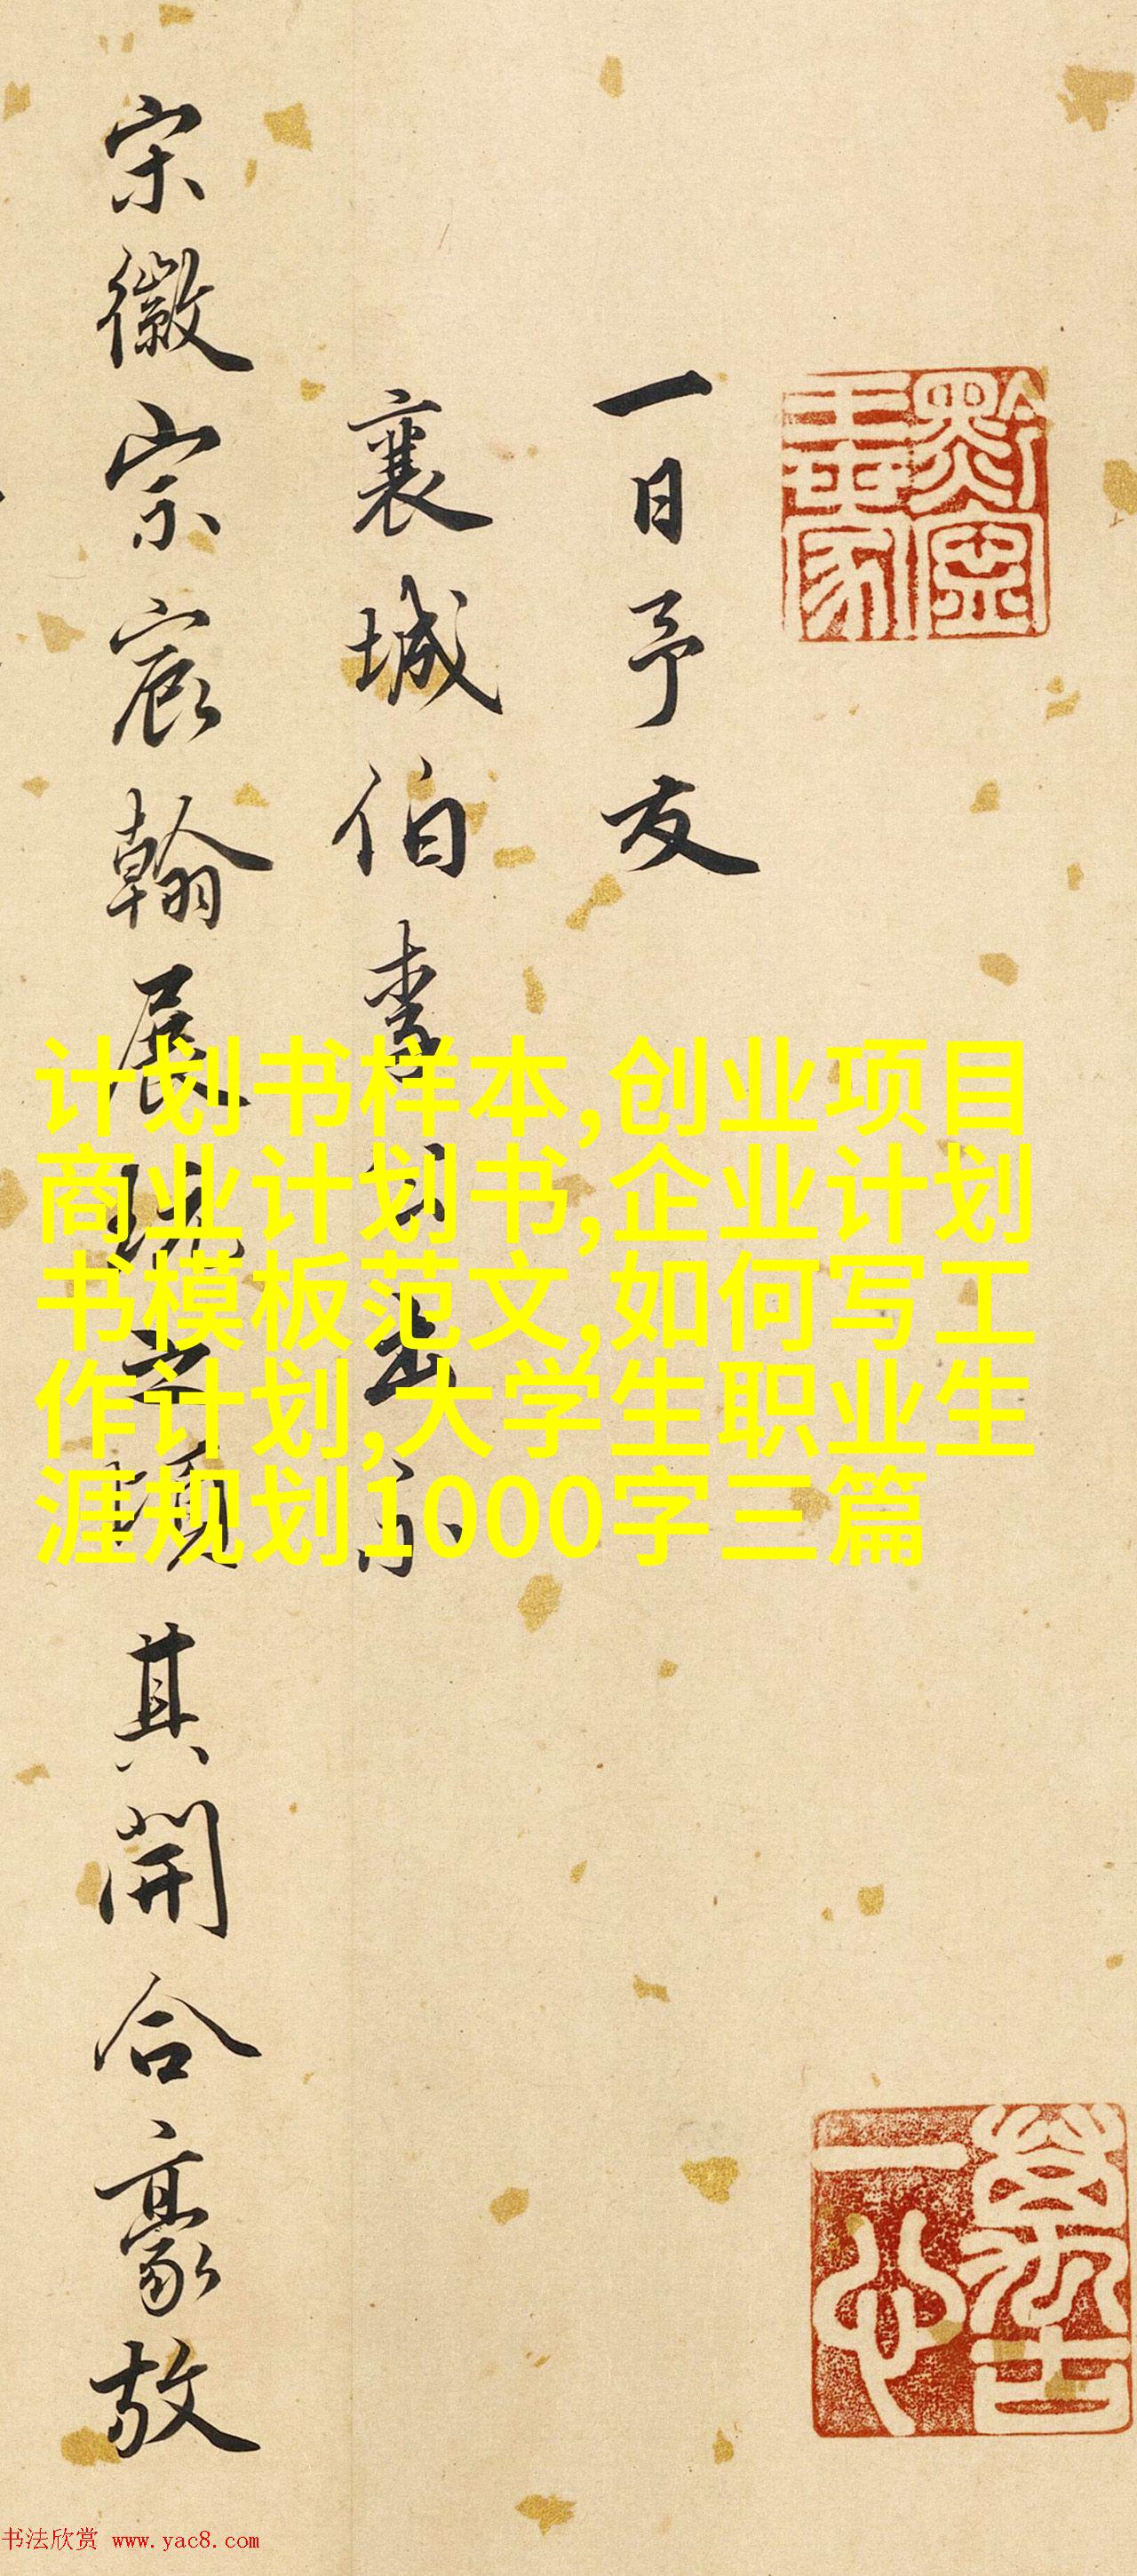 一日予友
襄城伯李
宋徽宗宸翰展玩之頃其開合豪放
计划书样本,创业项目
商业计划书,企业计划
书模板范文,如何写工
作计划,大学生职业生
涯规划1000字三篇
萬古
一心
书法欣赏 www.yac8.com